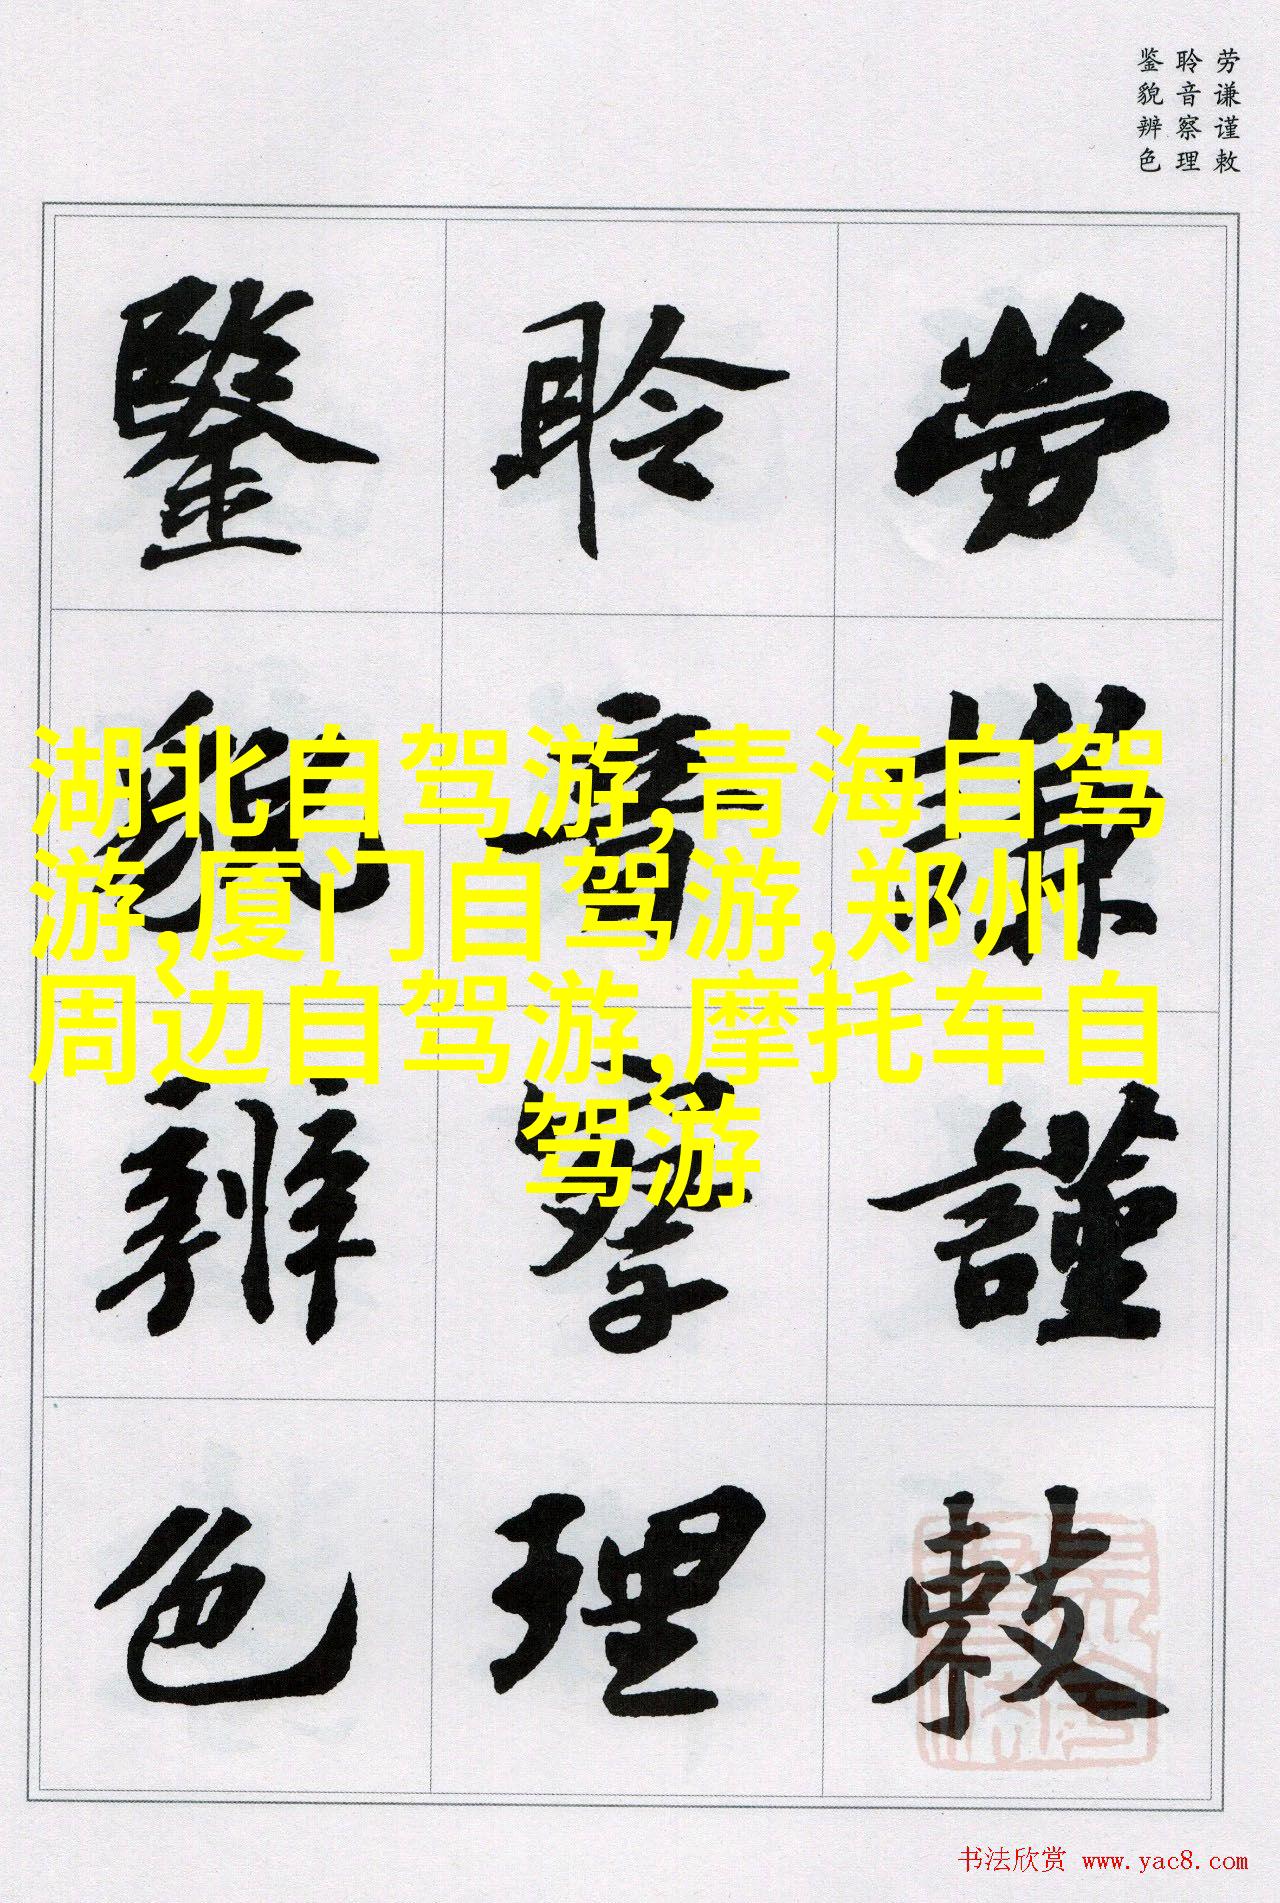 劳谦谨敕
聆音察理
鉴貌辨色
勞謙謹敕
聆音察理
鑒貌辨色
湖北自驾游,青海自驾
游,厦门自驾游,郑州
周边自驾游,摩托车自
驾游
书法欣赏 www.yac8.com